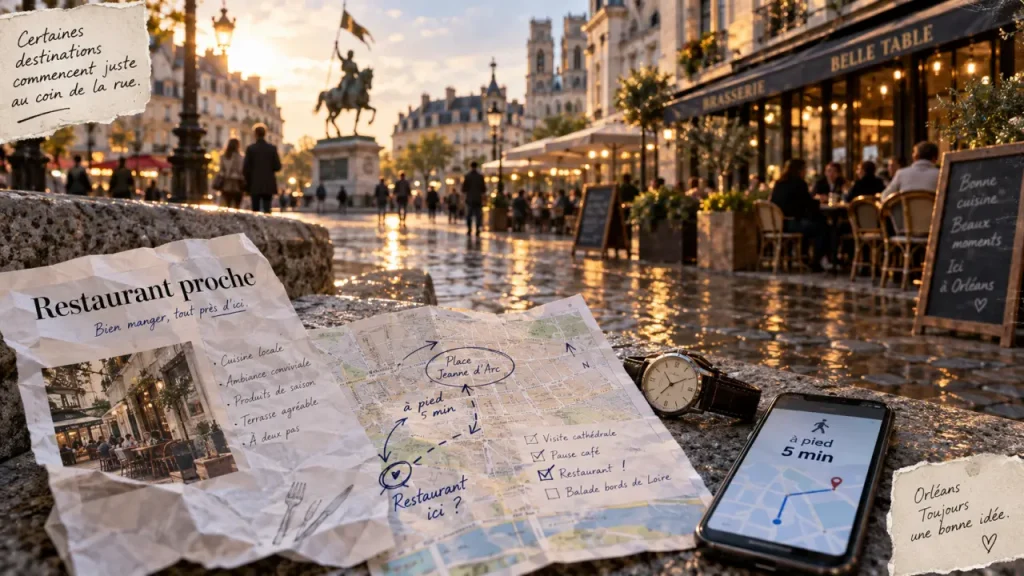 Certaines
destinations
commencent juste
au coin de la rue.
BRASSERIE
BELLE TABLE
Bonne
cuisine
Beaux
moments
Ici
à Orléans
Restaurant proche
Bien manger, tout près d'ici.
• Cuisine locale
• Ambiance conviviale
• Produits de saison
• Terrasse agréable
• À deux pas
Place
Jeanne d'Arc
N
à pied
5 min
Restaurant
ici ?
Visite cathédrale
Pause café
Restaurant !
Balade bords de Loire
à pied
5 min
Orléans
Toujours
une bonne idée.